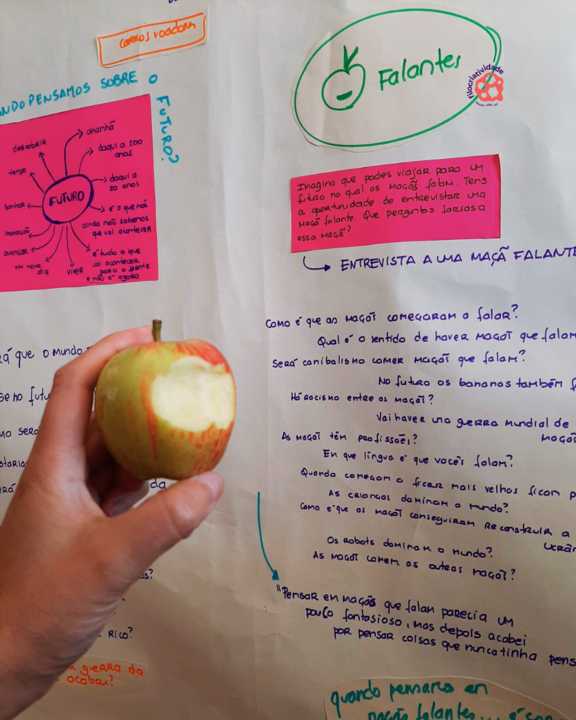 carros voadores
PENSAMOS SOBRE O
FUTURO?
amanhã
daqui a 200
anos
daqui a
20 anos
é o que nós
ainda não sabemos
que vai acontecer
é tudo o que
vai acontecer
para a frente
e não é agora
viver
um novo
dia
avançar
inovação
sonhar
tempo
descoberta
FUTURO
Falantes
filocriatividade
Imagina que podes viajar para um
futuro no qual as maçãs falam. Tens
a oportunidade de entrevistar uma
maçã falante. Que pergunta farias a
essa maçã?
ENTREVISTA A UMA MAÇÃ FALANTE
Como é que as maçãs começaram a falar?
Qual é o sentido de haver maçãs que falam
Será canibalismo comer maçãs que falam?
No futuro as bananas também
Há racismo entre as maçãs?
Vai haver una gerra mundial de
maçãs
As maçãs têm profissões?
Em que língua é que vocês falam?
Quando começam a ficar mais velhas ficam
As crianças dominam o mundo?
Como é que as maçãs conseguiram reconstruir a
Os robots dominam o mundo?
As maçãs comem as outras maçãs?
"Pensar em maçãs que falam parecia um
pouco fantasioso, mas depois acabei
por pensar coisas que nunca tinha
que o mundo
no futu
da
RICO?
gerra da
acabar?
quando pensamos em
maçãs falantes...